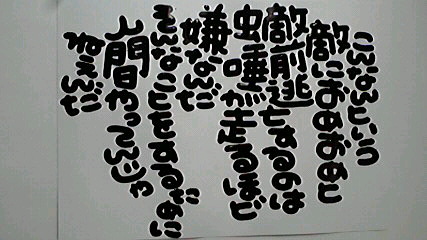 こんなんという
敵におめおめと
敵前逃亡するのは
虫唾が走るほど
嫌なんだ
そんなことをするために
人間やってんじゃ
ねぇんだ